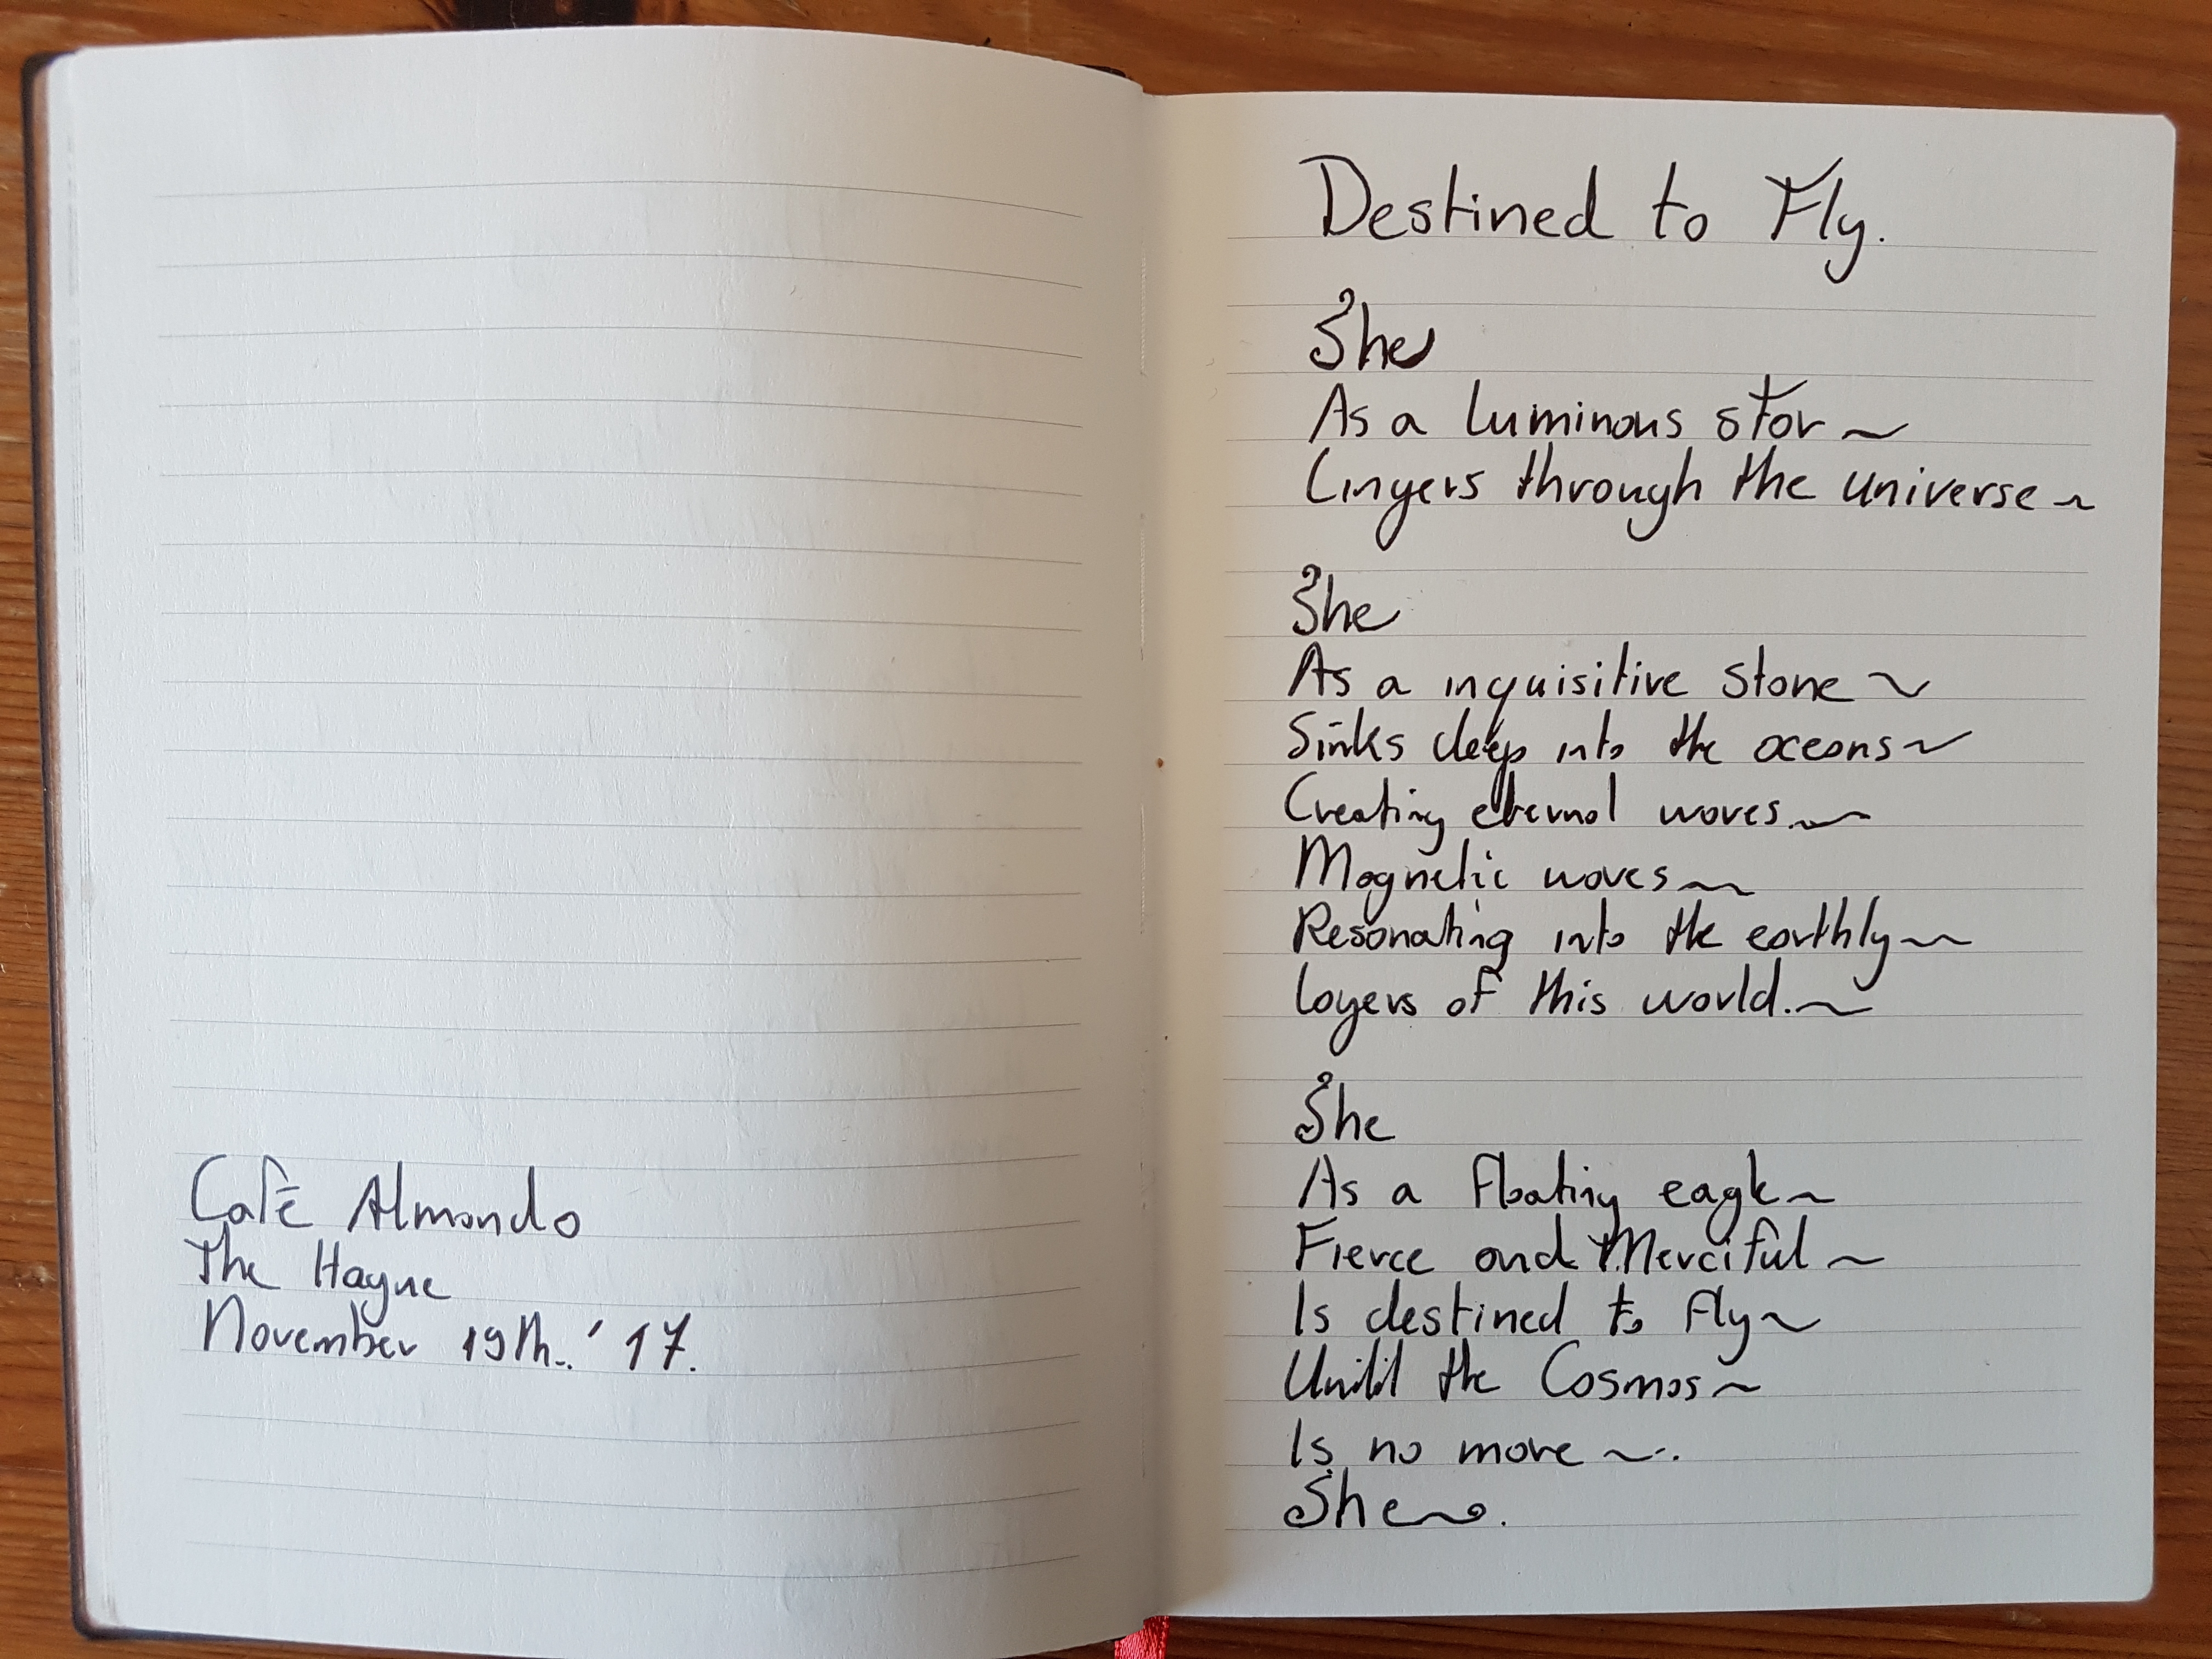 Café Almondo
The Hague
November 19th. '17.
Destined to Fly.
She
As a luminous star ~
Lingers through the universe ~
She
As a inquisitive stone ~
Sinks deep into the oceans ~
Creating eternal waves. ~
Magnetic waves ~
Resonating into the earthly ~
layers of this world. ~
She
As a floating eagle ~
Fierce and Merciful ~
Is destined to fly ~
Until the Cosmos ~
Is no more ~.
She ~.